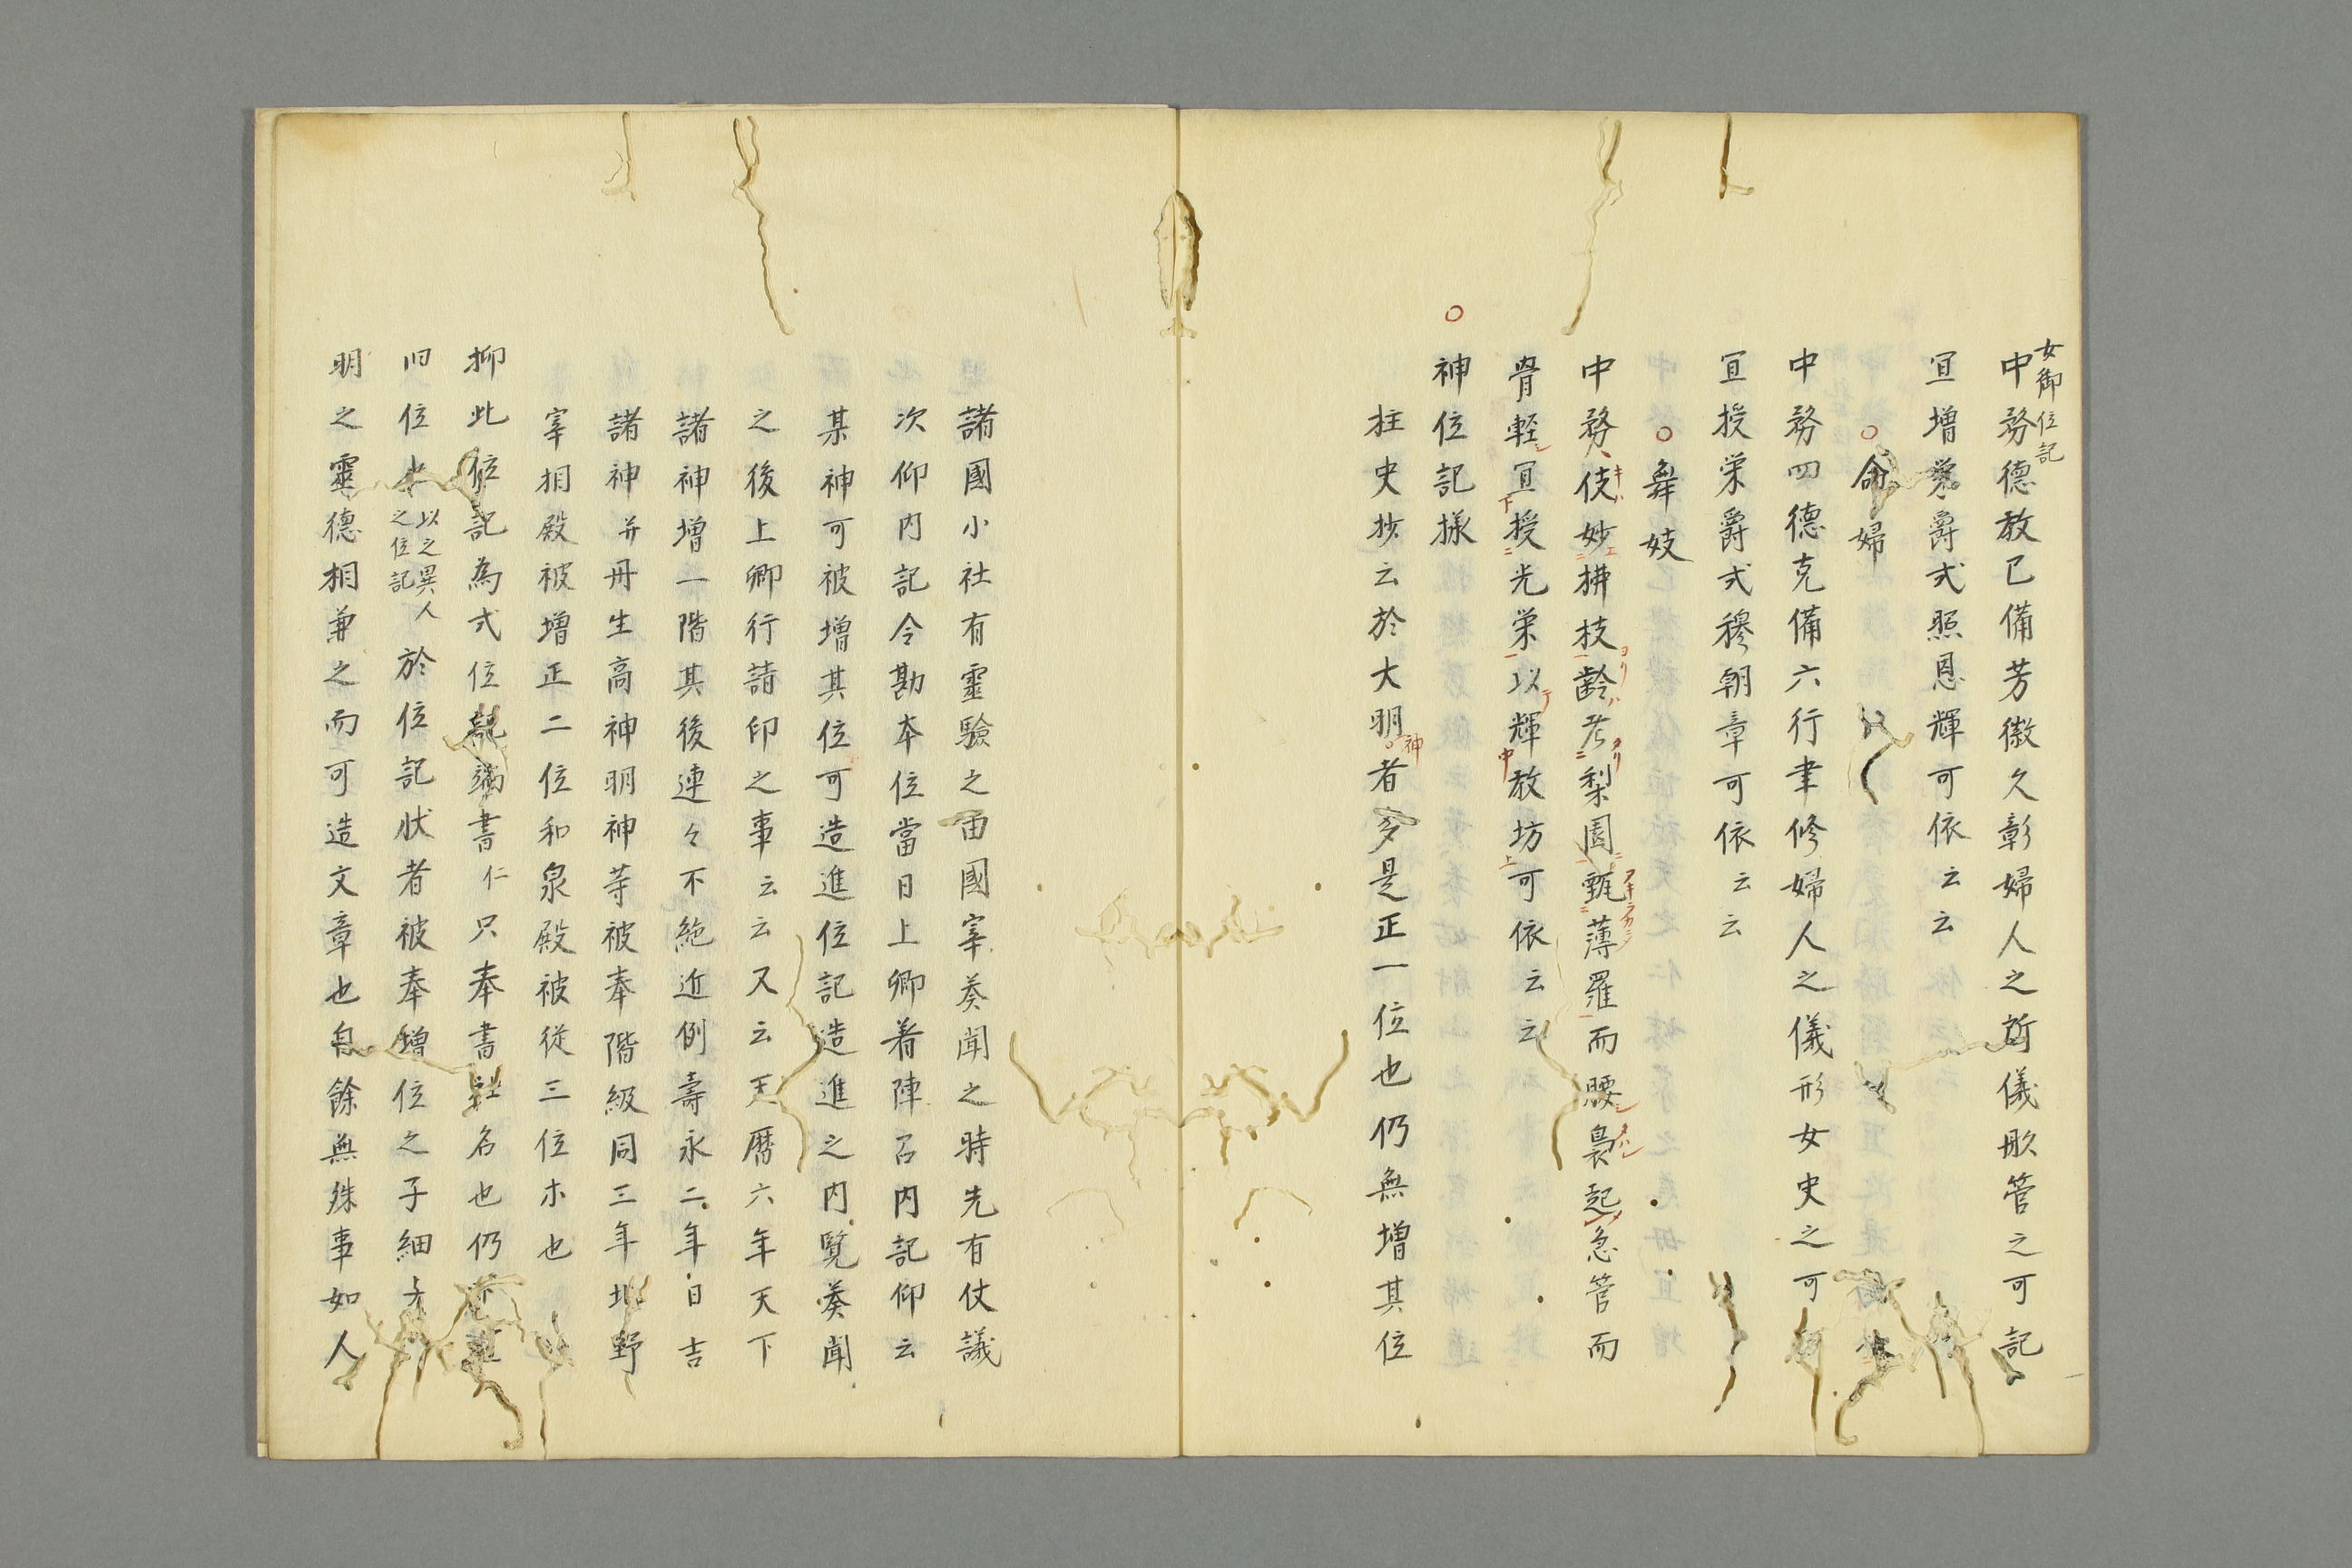 女御位記
中務德教已備芳徽久彰婦人之所儀彤管之可記
宜増榮爵式照恩輝可依云云
○命婦
中務四德克備六行聿修婦人之儀形女史之可
宜授栄爵式穆朝章可依云云
○舞妓
中務伎妙拂枝齡老梨園甄薄羅而腰裊起急管而
骨軽宜授光栄以輝教坊可依云云
○神位記様
柱史抄云於大明神者多是正一位也仍無増其位
諸國小社有霊驗之由國宰奏聞之時先有仗議
次仰内記令勘本位當日上卿着陣召内記仰云
某神可被増其位可造進位記造進之内覧奏聞
之後上卿行請印之事云云又云天暦六年天下
諸神増一階其後連々不絶近例壽永二年日吉
諸神并丹生高神明神等被奉階級同三年北野
宰相殿被増正二位和泉殿被従三位ホ也
抑此位記為式位記端書仁只奉書社名也仍
旧位 以之異人之位記 於位記状者被奉増位之子細
明之靈德相兼之而可造文章也自餘無殊事如人